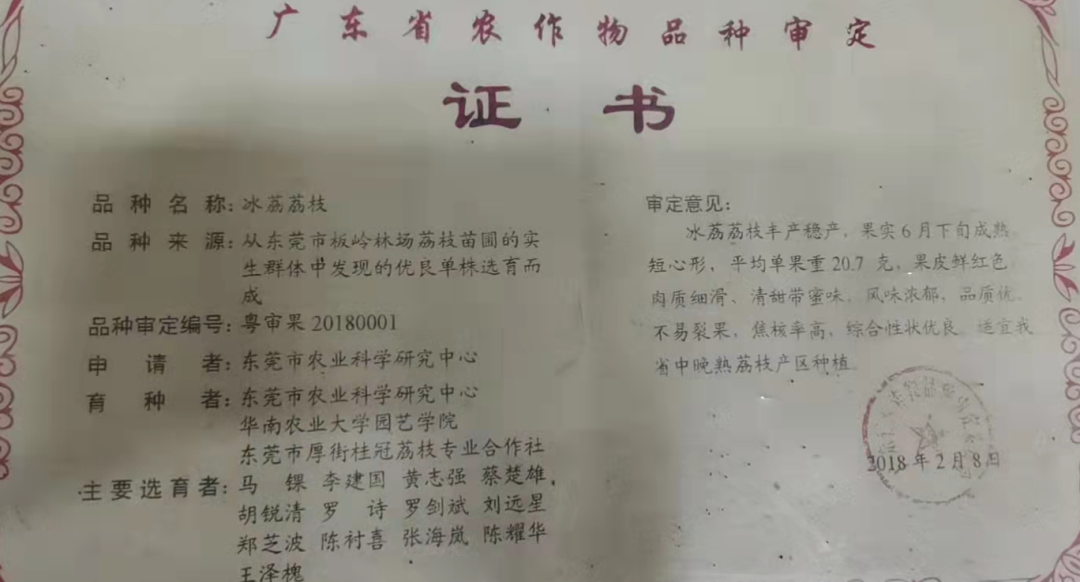 广东省农作物品种审定
证书
品种名称：冰荔荔枝
品种来源：从东莞市板岭林场荔枝苗圃的实
生群体中发现的优良单株选育而
成
品种审定编号：粤审果20180001
申请者：东莞市农业科学研究中心
育种者：东莞市农业科学研究中心
华南农业大学园艺学院
东莞市厚街桂冠荔枝专业合作社
主要选育者：马锞 李建国 黄志强 蔡楚雄
胡锐清 罗诗 罗剑斌 刘远星
郑芝波 陈衬喜 张海岚 陈耀华
王泽槐
审定意见：
冰荔荔枝丰产稳产，果实6月下旬成熟，
短心形，平均单果重20.7克，果皮鲜红色，
肉质细滑、清甜带蜜味，风味浓郁，品质优，
不易裂果，焦核率高，综合性状优良。适宜我
省中晚熟荔枝产区种植。
2018年2月8日